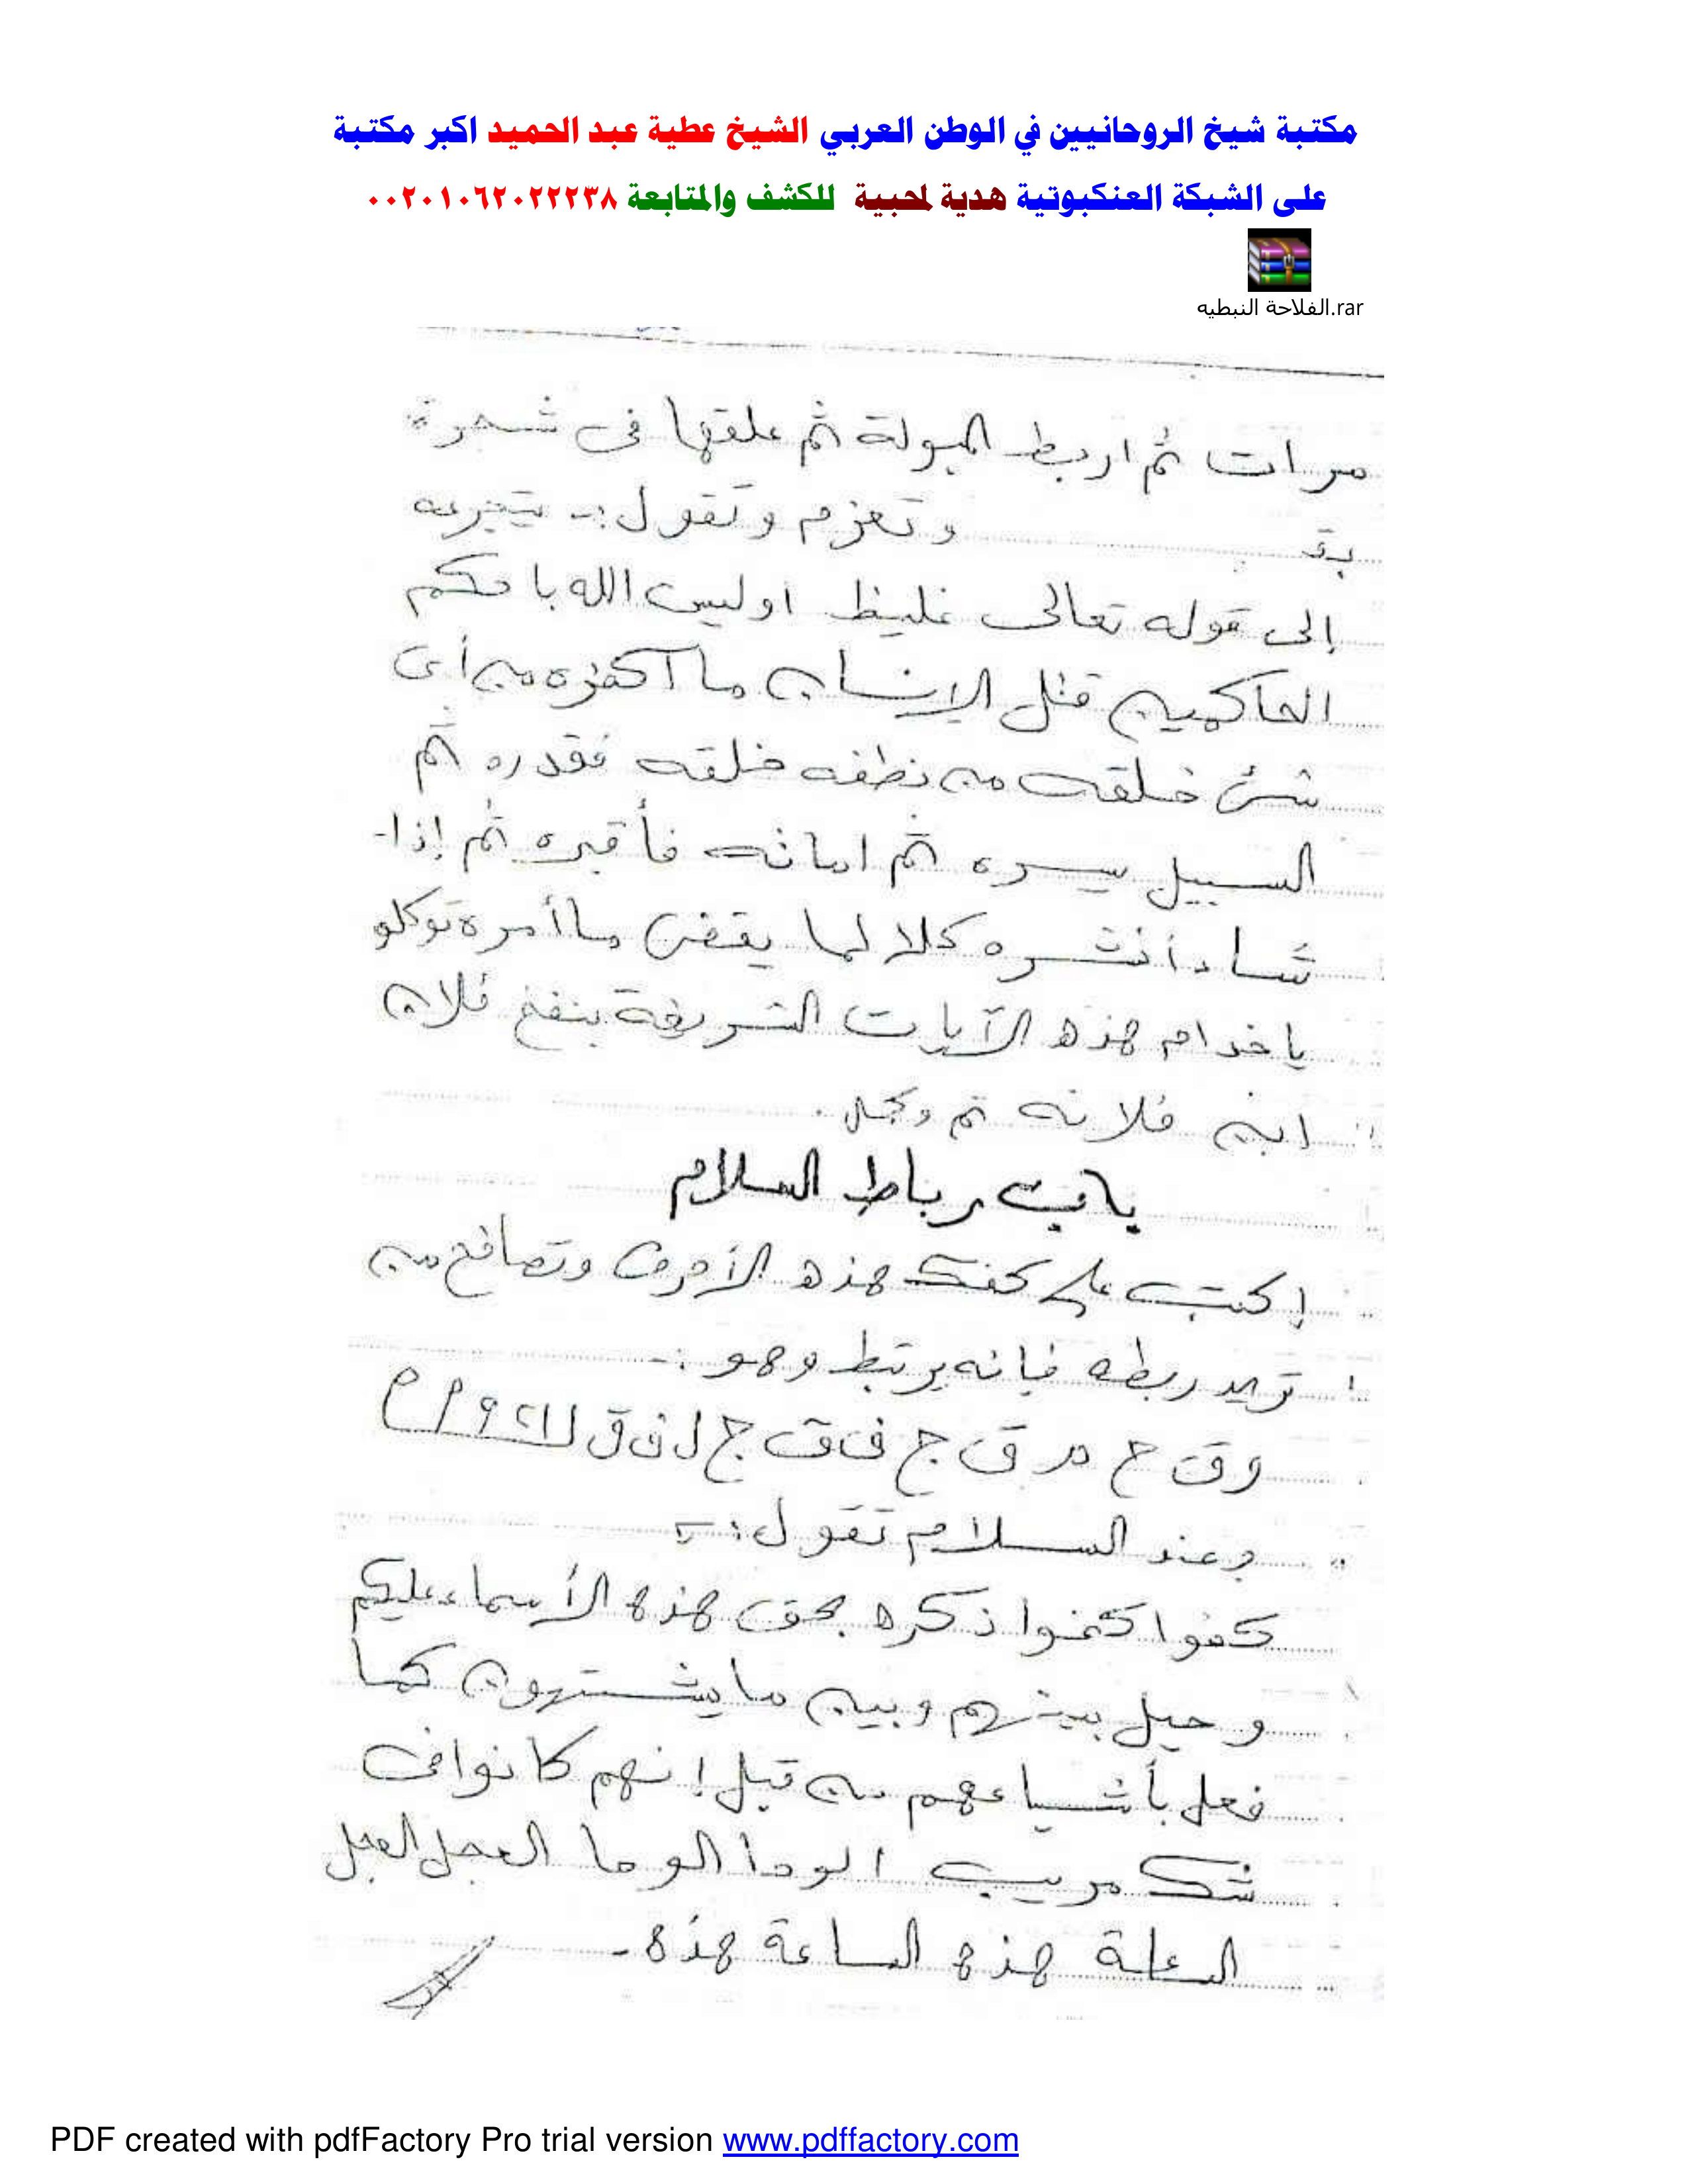 مكتبة شيخ الروحانيين في الوطن العربي الشيخ عطية عبد الحميد اكبر مكتبة
على الشبكة العنكبوتية هدية لمحبية للكشف والمتابعة ٠٠٢٠١٠٦٢٠٢٢٢٣٨
الفلاحة النبطيه.rar
مرات ثم اربط المبولة ثم علقها فى شجرة
وتعزم وتقول :- يتجرعه
إلى قوله تعالى غليظ اوليس الله باحكم
الحاكمين قتل الإنسان ما اكفره من أى
شئ خلقه من نطفه خلقه فقدره ثم
السبيل يسره ثم اماته فأقبره ثم إذا-
شاء أنشره كلا لما يقض ما أمره توكلو
ياخدام هذه الآيات الشريفة بنفخ فلان
ابن فلانه تم وكمل .
باب رباط السلام
إكتب على كفك هذه الأحرف وتصافح من
تريد ربطه فإنه يرتبط وهو :-
وعند السلام تقول :-
كفوا كفوا ذكره بحق هذه الأسماء عليكم
وحيل بينهم وبين ما يشتهون كما
فعل بأشياعهم من قبل إنهم كانوا فى
شك مريب الوحا الوحا العجل العجل
الساعة هذه الساعة هذه -
PDF created with pdfFactory Pro trial version www.pdffactory.com